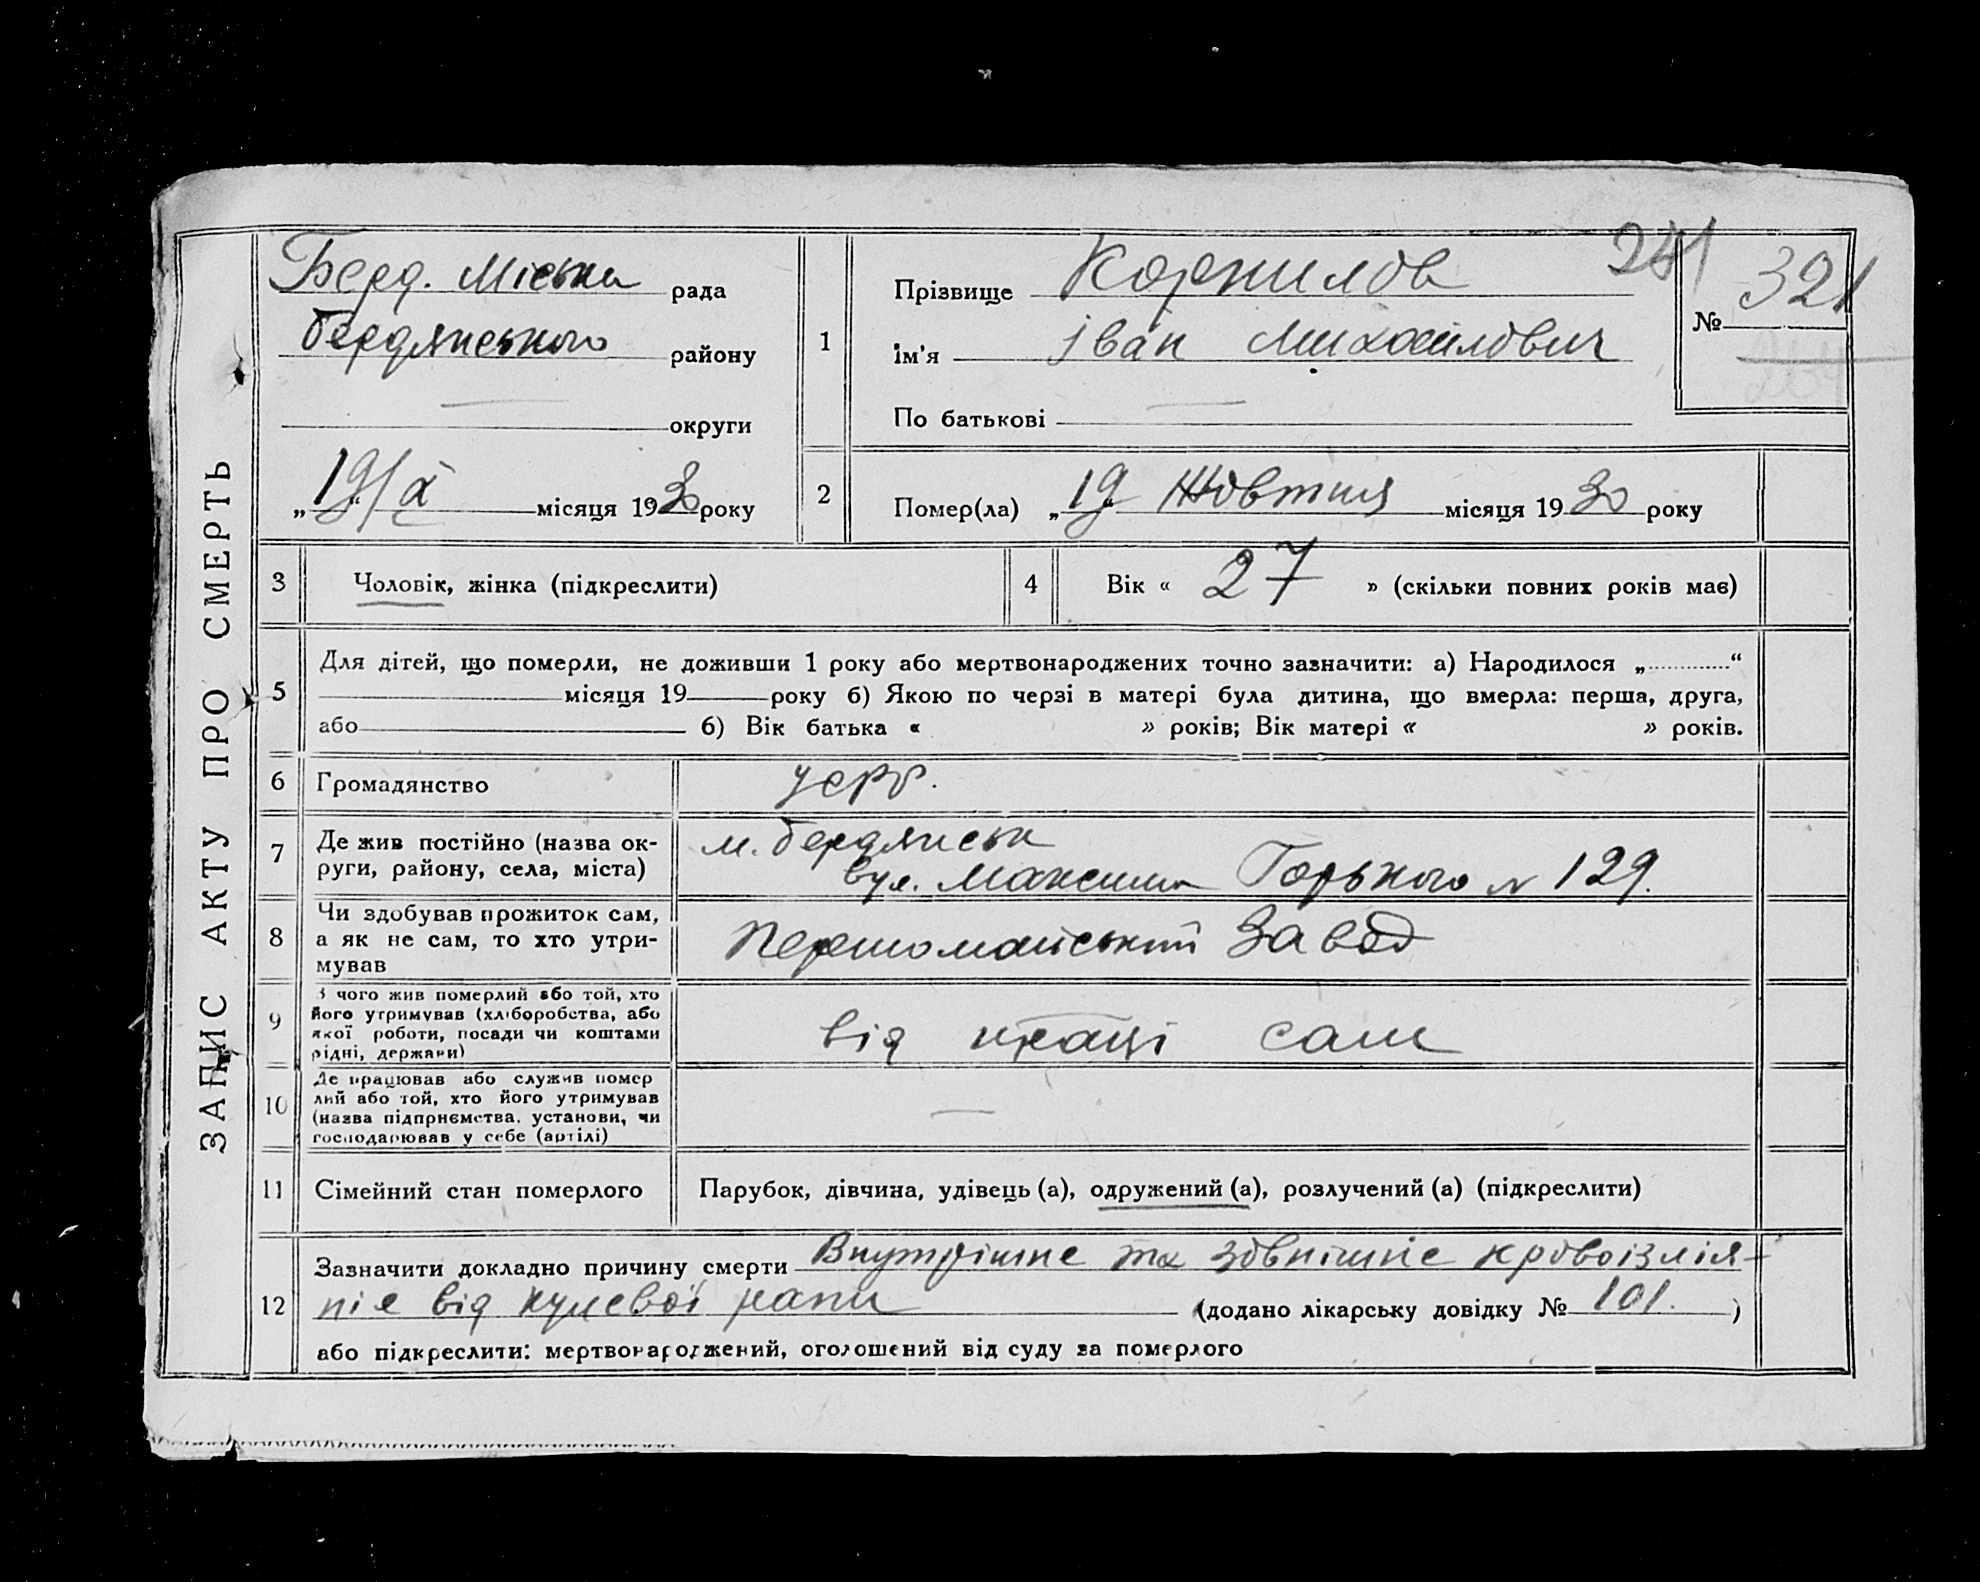 ЗАПИС АКТУ ПРО СМЕРТЬ
Берд. Міська рада
Бердянського району
округи
„19/X“ місяця 1930 року
1
Прізвище Корнилов
Ім'я Іван Михайлович
По батькові
241
№ 321
2
Помер(ла) „19“ Жовтня місяця 1930 року
3 Чоловік, жінка (підкреслити)
4 Вік « 27 » (скільки повних років має)
5
Для дітей, що померли, не доживши 1 року або мертвонароджених точно зазначити: а) Народилося „ “
місяця 19 року б) Якою по черзі в матері була дитина, що вмерла: перша, друга,
або б) Вік батька « » років; Вік матері « » років.
6 Громадянство УСРР.
7
Де жив постійно (назва ок-
руги, району, села, міста)
м. Бердянськ
вул. Максима Горького № 129.
8
Чи здобував прожиток сам,
а як не сам, то хто утри-
мував
Першомайський Завод
9
З чого жив померлий або той, хто
його утримував (хліборобства, або
якої роботи, посади чи коштами
рідні, держави)
від праці сам
10
Де працював або служив помер
лий або той, хто його утримував
(назва підприємства, установи, чи
господарював у себе (артілі)
11 Сімейний стан померлого
Парубок, дівчина, удівець (а), одружений (а), розлучений (а) (підкреслити)
12
Зазначити докладно причину смерти Внутрішне та зовнішнє кровоізлія-
ніє від кулевої рани (додано лікарську довідку № 101. )
або підкреслити: мертвонароджений, оголошений від суду за померлого